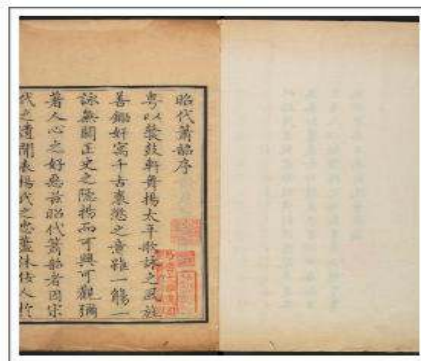 昭代簫韶序
粵以鼗鼓軒舞揚太平歌詠之風旌
善鋤奸寓千古褒懲之意雖一觴一
詠無關正史之隱揚而可興可觀彌
著人心之好惡茲昭代簫韶者因宋
代之遺聞表楊氏之忠藎誅佞人於